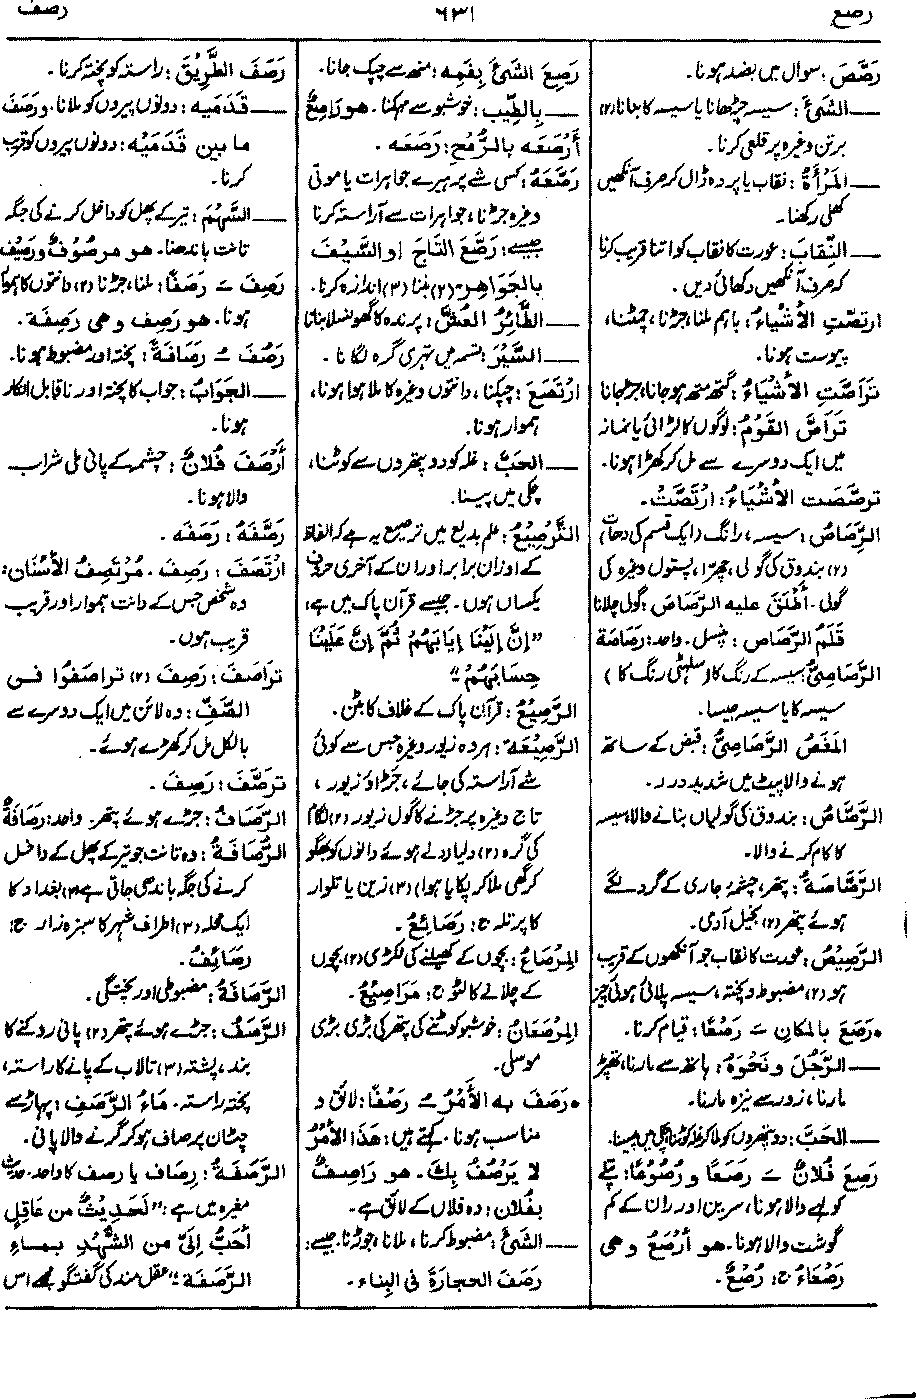 رصع ٦٣١ رصف
رَصَّصَ: سوال میں بضد ہونا۔
— الشَّیْءَ: سیسہ چڑھانا یا سیسہ کا جانا (۲)
برتن وغیرہ پر قلعی کرنا۔
— المَرْأَةُ: نقاب یا پردہ ڈال کر صرف آنکھیں
کھلی رکھنا۔
— النِّقَابَ: عورت کا نقاب کو اتنا قریب کرنا
کہ صرف آنکھیں دکھائی دیں۔
ارتَصَّتِ الأَشْیَاءُ: باہم ملنا، جڑنا، چمٹنا،
پیوست ہونا۔
تَرَاصَّتِ الأَشْیَاءُ: گتھ متھ ہوجانا، جڑجانا
تَرَاصَّ القَوْمُ: لوگوں کا لڑائی یا نماز
میں ایک دوسرے سے مل کر کھڑا ہونا۔
ترصَّصَت الأَشْیَاءُ: ارْتَصَّتْ۔
الرَّصَاصُ: سیسہ، رانگ (ایک قسم کی دھات)
(۲) بندوق کی گولی، چھرّا، پستول وغیرہ کی
گولی۔ أَطْلَقَ علیه الرَّصَاصَ: گولی چلانا
قَلَمُ الرَّصَاصِ: پنسل۔ واحد: رَصَاصَة
الرَّصَاصِیُّ: سیسہ کے رنگ کا (سلیٹی رنگ کا)
سیسہ کا یا سیسہ جیسا۔
المَغَصُ الرَّصَاصِیُّ: قبض کے ساتھ
ہونے والا پیٹ میں شدید درد۔
الرَّصَّاصُ: بندوق کی گولیاں بنانے والا، سیسہ
کا کام کرنے والا۔
الرَّصَّاصَةُ: پتھر، چشمہ جاری کے گرد لگے
ہوئے پتھر (۲) بخیل آدمی۔
الرَّصِیْصُ: عورت کا نقاب جو آنکھوں کے قریب
ہو (۲) مضبوط و پختہ، سیسہ پلائی ہوئی چیز
• رَصَعَ بالمکانِ ـَ رَصْعًا: قیام کرنا۔
— الرَّجُلَ و نَحْوَهُ: ہاتھ سے مارنا، تھپڑ
مارنا، زور سے نیزہ مارنا۔
— الحَبَّ: دو پتھروں کو ملا کر غلہ کوٹنا، چکی میں پیسنا۔
رَصِعَ فُلَانٌ ـَ رَصَعًا و رُصُوْعًا: پتلے
کولہے والا ہونا، سرین اور ران کے کم
گوشت والا ہونا۔ هو أَرْصَعُ و هی
رَصْعَاءُ ج: رُصْعٌ۔
رَصِعَ الشَّیْءُ بِفَمِهِ: منھ سے چپک جانا۔
— بِالطِّیْبِ: خوشبو سے مہکنا۔ هو رَاصِعٌ
أَرْصَعَه بالرُّمْحِ: رَصَعَه۔
رَصَّعَهُ: کسی شے پر ہیرے جواہرات یا موتی
وغیرہ جڑنا، جواہرات سے آراستہ کرنا
جیسے: رَصَّعَ التَّاجَ أو السَّیْفَ
بالجَوَاهِرِ۔ (۲) بُننا (۳) اندازہ کرنا۔
— الطَّائِرُ العُشَّ: پرندہ کا گھونسلا بنانا
— السَّیْرَ: تسمہ میں تہری گرہ لگانا۔
ارْتَصَعَ: چپکنا، دانتوں وغیرہ کا ملا ہوا ہونا،
ہموار ہونا۔
— الحَبَّ: غلہ کو دو پتھروں سے کوٹنا،
چکی میں پیسنا۔
التَّرْصِیْعُ: علم بدیع میں ترصیع یہ ہے کہ الفاظ
کے اوزان برابر اور ان کے آخری حروف
یکساں ہوں۔ جیسے قرآن پاک میں ہے:
"إِنَّ إِلَیْنَا إِیَابَهُمْ ثُمَّ إِنَّ عَلَیْنَا
حِسَابَهُمْ"
الرَّصِیْعُ: قرآن پاک کے غلاف کا بٹن۔
الرَّصِیْعَة: ہر وہ زیور وغیرہ جس سے کوئی
شے آراستہ کی جائے، جڑاؤ زیور،
تاج وغیرہ پر جڑنے کا گول زیور (۲) لگام
کی گرہ (۲) دلیا (دلے ہوئے دانوں کو بھگو
کر گھی ملا کر پکایا ہوا) (۳) زین یا تلوار
کا پرتلہ ج: رَصَائِعُ۔
المِرْصَاعُ: بچوں کے کھیلنے کی لکڑی (۲) بچوں
کے چلانے کا لٹو ج: مَرَاصِیْعُ۔
المِرْصَعَانُ: خوشبو کوٹنے کی پتھر کی بڑی بڑی
موسلی۔
• رَصَفَ به الأَمْرُ ـُ رَصْفًا: لائق و
مناسب ہونا۔ کہتے ہیں: هَذَا الأَمْرُ
لا یَرْصُفُ بِكَ۔ هو رَاصِفٌ
بِفُلَانٍ: وہ فلاں کے لائق ہے۔
— الشَّیْءَ: مضبوط کرنا، ملانا، جوڑنا۔ جیسے:
رَصَفَ الحِجَارَةَ فی البِناء۔
رَصَفَ الطَّرِیْقَ: راستہ کو پختہ کرنا۔
— قَدَمَیه: دونوں پیروں کو ملانا۔ ورَصَفَ
ما بین قَدَمَیْه: دونوں پیروں کو قریب
کرنا۔
— السَّهْمَ: تیر کے پھل کو داخل کرنے کی جگہ
تانت باندھنا۔ هو مرصُوْفٌ ورَصِیْف
رَصِفَ ـَ رَصَفًا: ملنا، جڑنا (۲) دانتوں کا ہموار
ہونا۔ هو رَصِف و هی رَصِفَة۔
رَصُفَ ـُ رَصَافَةً: پختہ اور مضبوط ہونا۔
— الجَوَابُ: جواب کا پختہ اور ناقابل انکار
ہونا۔
أَرْصَفَ فُلَانٌ: چشمہ کے پانی ملی شراب
والا ہونا۔
رَصَّفَهُ: رَصَفَه۔
ارْتَصَفَ: رَصِفَ۔ مُرْتَصِفُ الأَسْنَان:
وہ شخص جس کے دانت ہموار اور قریب
قریب ہوں۔
تَراصَفَ: رَصِفَ (۲) تراصَفُوا فی
الصَّفِّ: وہ لائن میں ایک دوسرے سے
بالکل مل کر کھڑے ہوئے۔
ترصَّفَ: رَصِفَ۔
الرِّصَافُ: جڑے ہوئے پتھر۔ واحد: رَصَافَةٌ
الرِّصَافَةُ: وہ تانت جو تیر کے پھل کے داخل
کرنے کی جگہ باندھی جاتی ہے (۲) بغداد کا
ایک محلہ (۳) اطراف شہر کا سبزہ زار ج:
رَصَائِفُ۔
الرَّصَافَةُ: مضبوطی اور پختگی۔
الرَّصَفُ: جڑے ہوئے پتھر (۲) پانی روکنے کا
بند، پشتہ (۳) تالاب کے پانے کا راستہ،
پختہ راستہ۔ مَاءُ الرَّصَفِ: پہاڑ سے
چٹان پر صاف ہوکر گرنے والا پانی۔
الرَّصَفَةُ: رِصَاف یا رصف کا واحد۔ حدیث
مغیرہ میں ہے: "لَحَدِیْثٌ من عَاقِلٍ
أَحَبُّ إِلَیَّ من الشُّهْدِ بِماءِ
الرَّصَفَة" عقل مند کی گفتگو مجھے اس